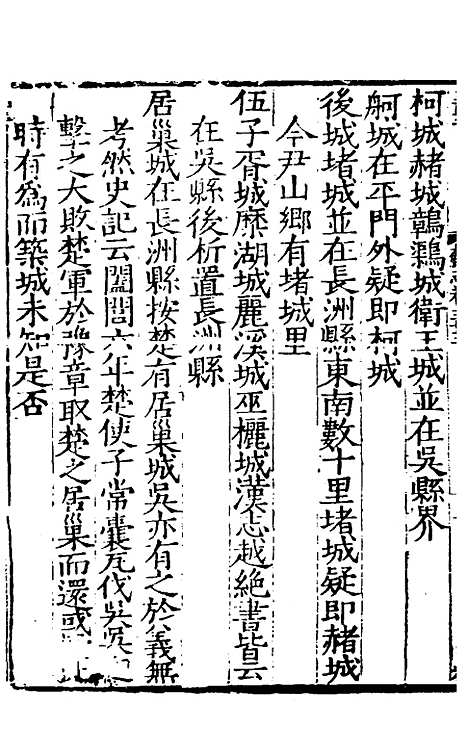 柯城赭城鷯鸂城衛王城並在吳縣界
舸城在平門外疑即柯城
後城堵城並在長洲縣東南數十里堵城疑即赭城
今尹山鄉有堵城里
伍子胥城糜湖城麗溪城巫欐城漢志越絕書皆云
在吳縣後析置長洲縣
居巢城在長洲縣按楚有居巢城吳亦有之於義無
考然史記云闔閭六年楚使子常囊瓦伐吳
擊之大敗楚軍於豫章取楚之居巢而還或
時有為而築城未知是否